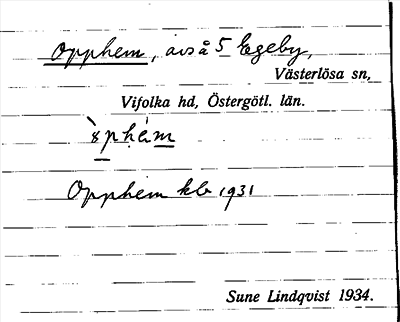 Opphem, avs å 5 Egeby,
Västerlösa sn,
Vifolka hd, Östergötl. län.
Opphem kb 1931
Sune Lindqvist 1934.